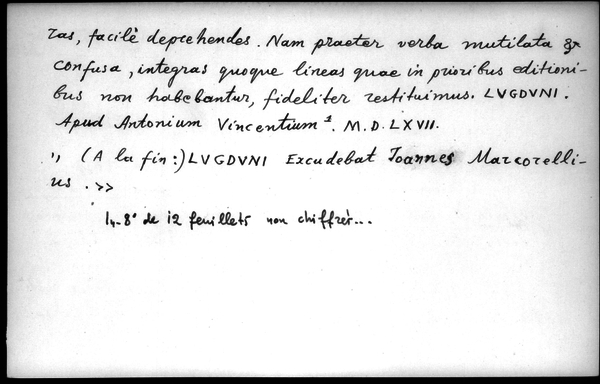 ras, facilè deprehendes. Nam praeter verba mutilata &
confusa, integras quoque lineas quae in prioribus editioni-
bus non habebantur, fideliter restituimus. LVGDVNI.
Apud Antonium Vincentium. M.D.LXVII.
" (A la fin:) LVGDVNI Excudebat Ioannes Marcorelli-
us. >>
In-8° de 12 feuillets non chiffrés...